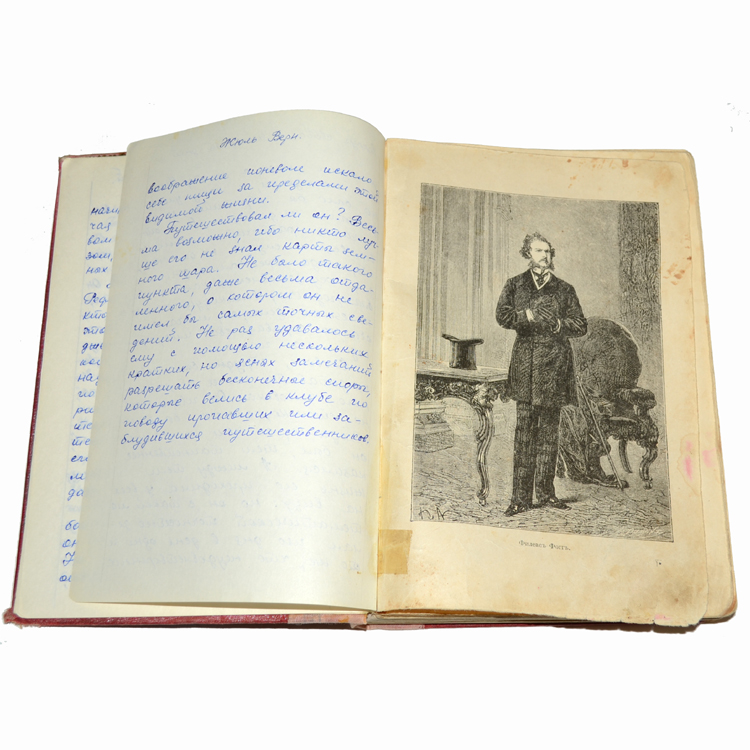 Жюль Верн.
воображение поневоле искало
себе пищи за пределами этой
видимой жизни.
Путешествовал ли он? Весь-
ма возможно, ибо никто луч-
ше его не знал карты зем-
ного шара. Не было такого
пункта, даже весьма отда-
ленного, о котором он не
имел бы самых точных све-
дений. Не раз удавалось
ему с помощью нескольких
кратких, но ясных замечаний
разрешать бесконечные споры,
которые велись в клубе по
поводу пропавших или за-
блудившихся путешественников.
начи
чая
вом
зом,
нах
Род
кт
это
даж
на
по
ри
те
те
ег
ли
да
ба
он
Филеасъ Фоггъ.